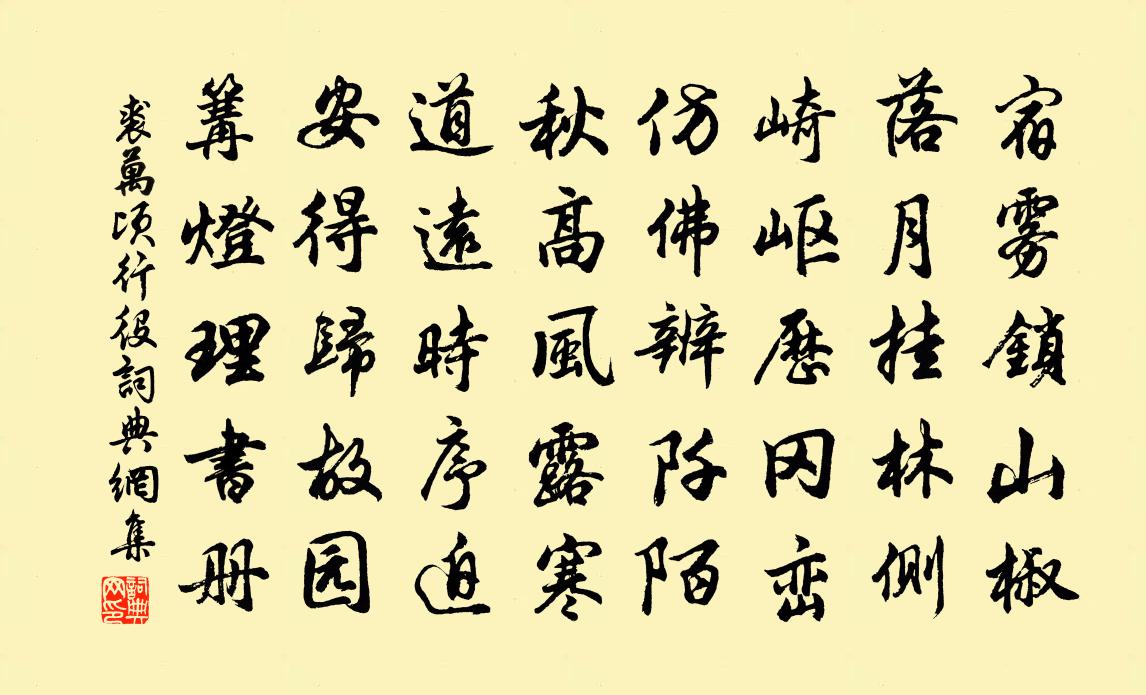 宿雾鎖山椒
落月挂林側
崎岖歷冈峦
仿佛辨阡陌
秋高風露寒
道遠時序迫
安得歸故园
篝燈理書册
裘萬頃行役詞典網集
詞典网印